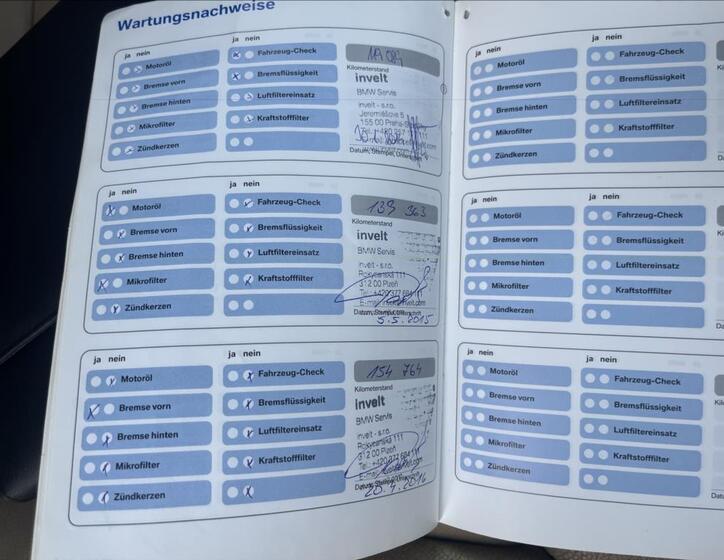 Wartungsnachweise
ja nein
Motoröl
Bremse vorn
Bremse hinten
Mikrofilter
Zündkerzen
ja nein
Fahrzeug-Check
Bremsflüssigkeit
Luftfiltereinsatz
Kraftstofffilter
Kilometerstand
invelt
BMW Servis
invelt - s.r.o.
155 00 Praha
Datum, Stempel, Unterschrift
ja nein
Motoröl
Bremse vorn
Bremse hinten
Mikrofilter
Zündkerzen
ja nein
Fahrzeug-Check
Bremsflüssigkeit
Luftfiltereinsatz
Kraftstofffilter
139 363
Kilometerstand
invelt
BMW Servis
invelt - s.r.o.
Rokycanská 111
312 00 Plzeň
5.5.2015
ja nein
Motoröl
Bremse vorn
Bremse hinten
Mikrofilter
Zündkerzen
ja nein
Fahrzeug-Check
Bremsflüssigkeit
Luftfiltereinsatz
Kraftstofffilter
154 764
Kilometerstand
invelt
BMW Servis
invelt - s.r.o.
Rokycanská 111
312 00 Plzeň
ja nein
Motoröl
Bremse vorn
Bremse hinten
Mikrofilter
Zündkerzen
ja nein
Fahrzeug-Check
Bremsflüssigkeit
Luftfiltereinsatz
Kraftstofffilter
ja nein
Motoröl
Bremse vorn
Bremse hinten
Mikrofilter
Zündkerzen
ja nein
Fahrzeug-Check
Bremsflüssigkeit
Luftfiltereinsatz
Kraftstofffilter
ja nein
Motoröl
Bremse vorn
Bremse hinten
Mikrofilter
Zündkerzen
ja nein
Fahrzeug-Check
Bremsflüssigkeit
Luftfiltereinsatz
Kraftstofffilter